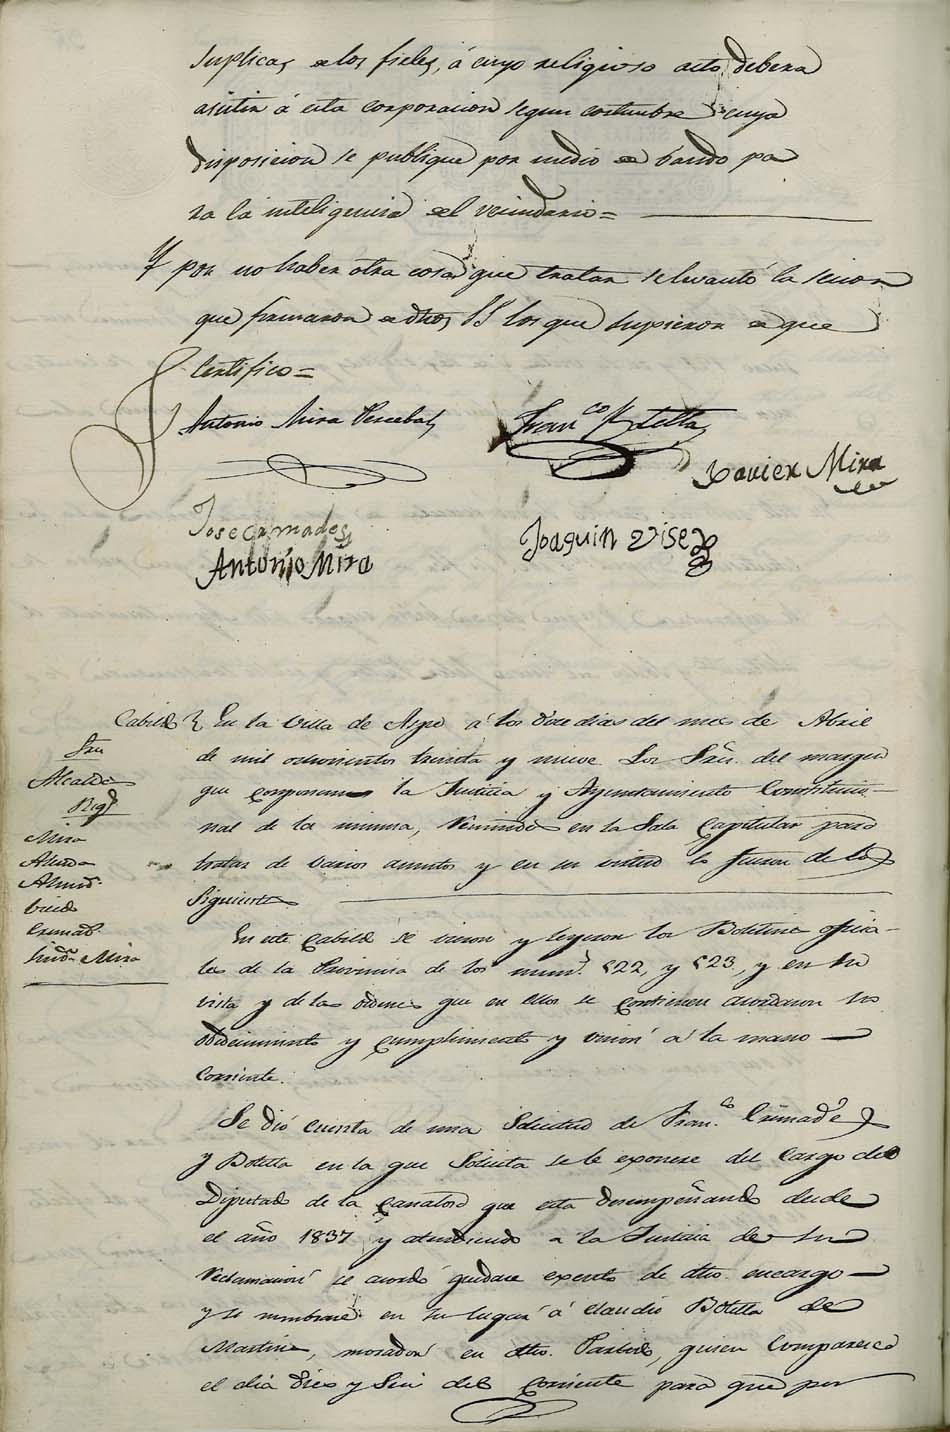 suplicas a los fieles, á cuyo religioso acto debera
asistir á esta corporacion segun costumbre cuya
disposicion se publique por medio de bando pa
ra la inteligencia del vecindario =
Y por no haber otra cosa que tratar se levantó la sesion
que firmaron de dhos SS los que supieron de que
Certifico =
Antonio Mira Perceval
Fran.co Botella
Xavier Mira
Jose Cremades
Joaquin Vise
Antonio Mira
Cabildo
Sres
Alcaldes
Reg.s
Mira
Alzada
Almod.
Vicedo
Cremad.
Sindco Mira
En la Villa de Aspe á los doze dias del mes de Abril
de mil ochocientos treinta y nueve Los Sres. del margen
que componen la Justicia y Ayuntamiento Constitucio-
nal de la misma, reunidos en la Sala Capitular para
tratar de varios asuntos y en su virtud lo fueron de los
Siguientes
En este Cabildo se vieron y leyeron los Boletines oficia-
les de la Provincia de los num.s 522, y 523, y en su
vista y de las ordenes que en ellos se contienen acordaron su
obedecimiento y cumplimiento y union á la mano
Corriente.
Se dió cuenta de una Solicitud de Fran.co Cremades
y Botella en la que Solicita se le exonere del Cargo de
Diputado de la Canalosa que esta desempeñando desde
el año 1837 y atendiendo a la Justicia de su
reclamacion se acordó quedase exento de dho. encargo
y se nombrase en su lugar á Claudio Botella de
Martinez, morador en dho. Partido, quien Comparesca
el dia Diez y Seis del Corriente para que por